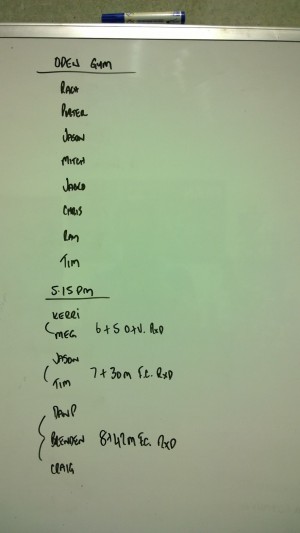 OPEN GYM
PORTER
JASON
MITCH
JARED
CHRIS
RAM
TIM
5.15 PM
KERRI
MEG 6+5 O.H. RXD
JASON
TIM 7+30m F.C. RXD
DAN P
BRENDEN 8+42m F.C. RXD
CRAIG